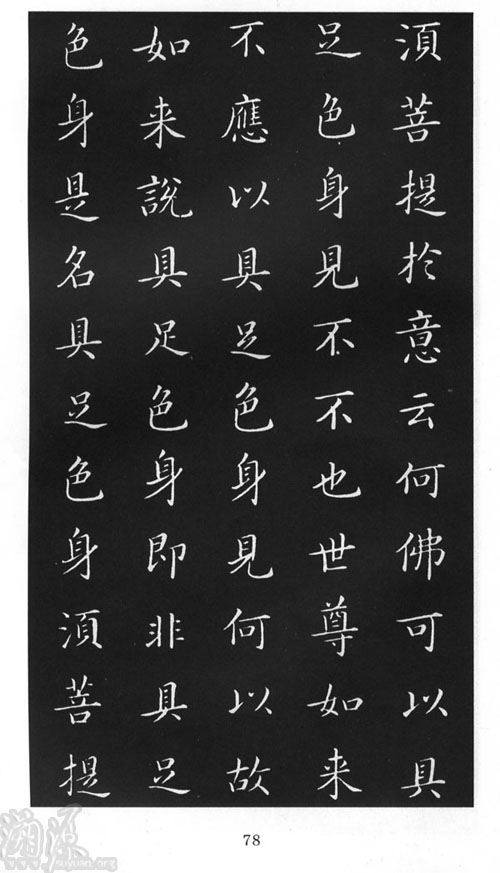 湏菩提於意云何佛可以具
足色身見不不也世尊如来
不應以具足色身見何以故
如来說具足色身即非具足
色身是名具足色身湏菩提
78
溯源
www.suyuan.org